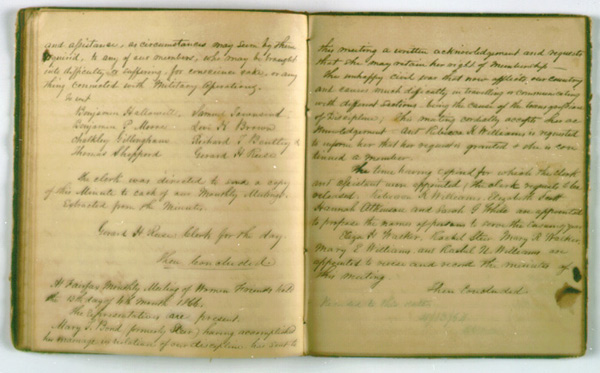 and assistance, as circumstances may seem by them
required, to any of our members, who may be brought
into difficulty or suffering, for conscience sake, or any
thing connected with Military operations.
to wit
Benjamin Hallowell Samuel Townsend
Benjamin P. Moore Levi K Brown
Chalkley Gillingham Richard T Bentley &
Thomas Shepperd Gerard H Reese
the clerk was directed to send a copy
of this Minute to each of our Monthly Meetings.
Extracted from the Minutes.
Gerard H Reese Clerk for the day.
Then Concluded.
At Fairfax Monthly Meeting of Women Friends held
the 15th day of 6th Month 1864.
The representatives are present
Mary S. Bond (formerly Steer) having accomplished
her marriage in violation of our discipline, has sent to
this meeting a written acknowledgement and requests
that she may retain her right of Membership—
The unhappy civil war that now afflicts our country
and causes much difficulty in travelling or communicating
with different sections, being the cause of the transgression
of Discipline; the meeting cordially accepts her ac
knowledgement and Rebecca H Williams is requested
to inform her that her request is granted & she is con
tinued a member.
The time having expired for which the Clerk
and assistant were appointed, the clerk requests to be
released. Rebecca H Williams, Elizabeth Scott
Hannah Atkinson and Sarah E White are appointed
to propose the names of persons to serve the ensuing year
Eliza H Walker, Rachel Steer Mary R Walker,
Mary E Williams and Rachel N Williams are
appointed to revise and record the minutes of
this meeting.
Then Concluded.
to this